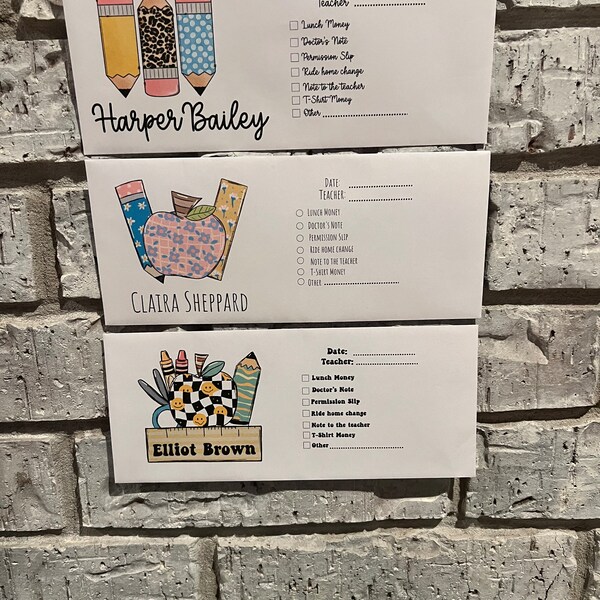 Teacher ................
Lunch Money
Doctor's Note
Permission Slip
Ride home change
Note to the teacher
T-Shirt Money
Other ................
Harper Bailey
Date: ................
Teacher: ................
Lunch Money
Doctor's Note
Permission Slip
Ride home change
Note to the teacher
T-Shirt Money
Other ................
Claira Sheppard
Date: ................
Teacher: ................
Lunch Money
Doctor's Note
Permission Slip
Ride home change
Note to the teacher
T-Shirt Money
Other ................
Elliot Brown